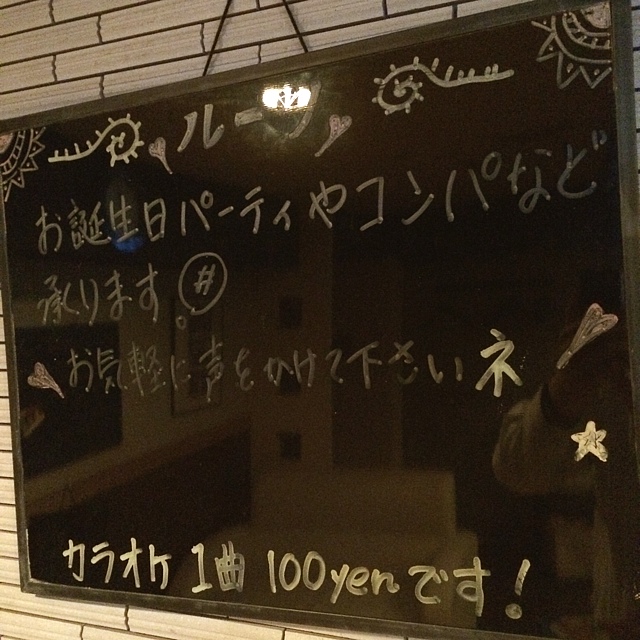 お誕生日パーティやコンパなど
承ります。#
お気軽に声をかけて下さいネ
カラオケ 1曲 100yenです!